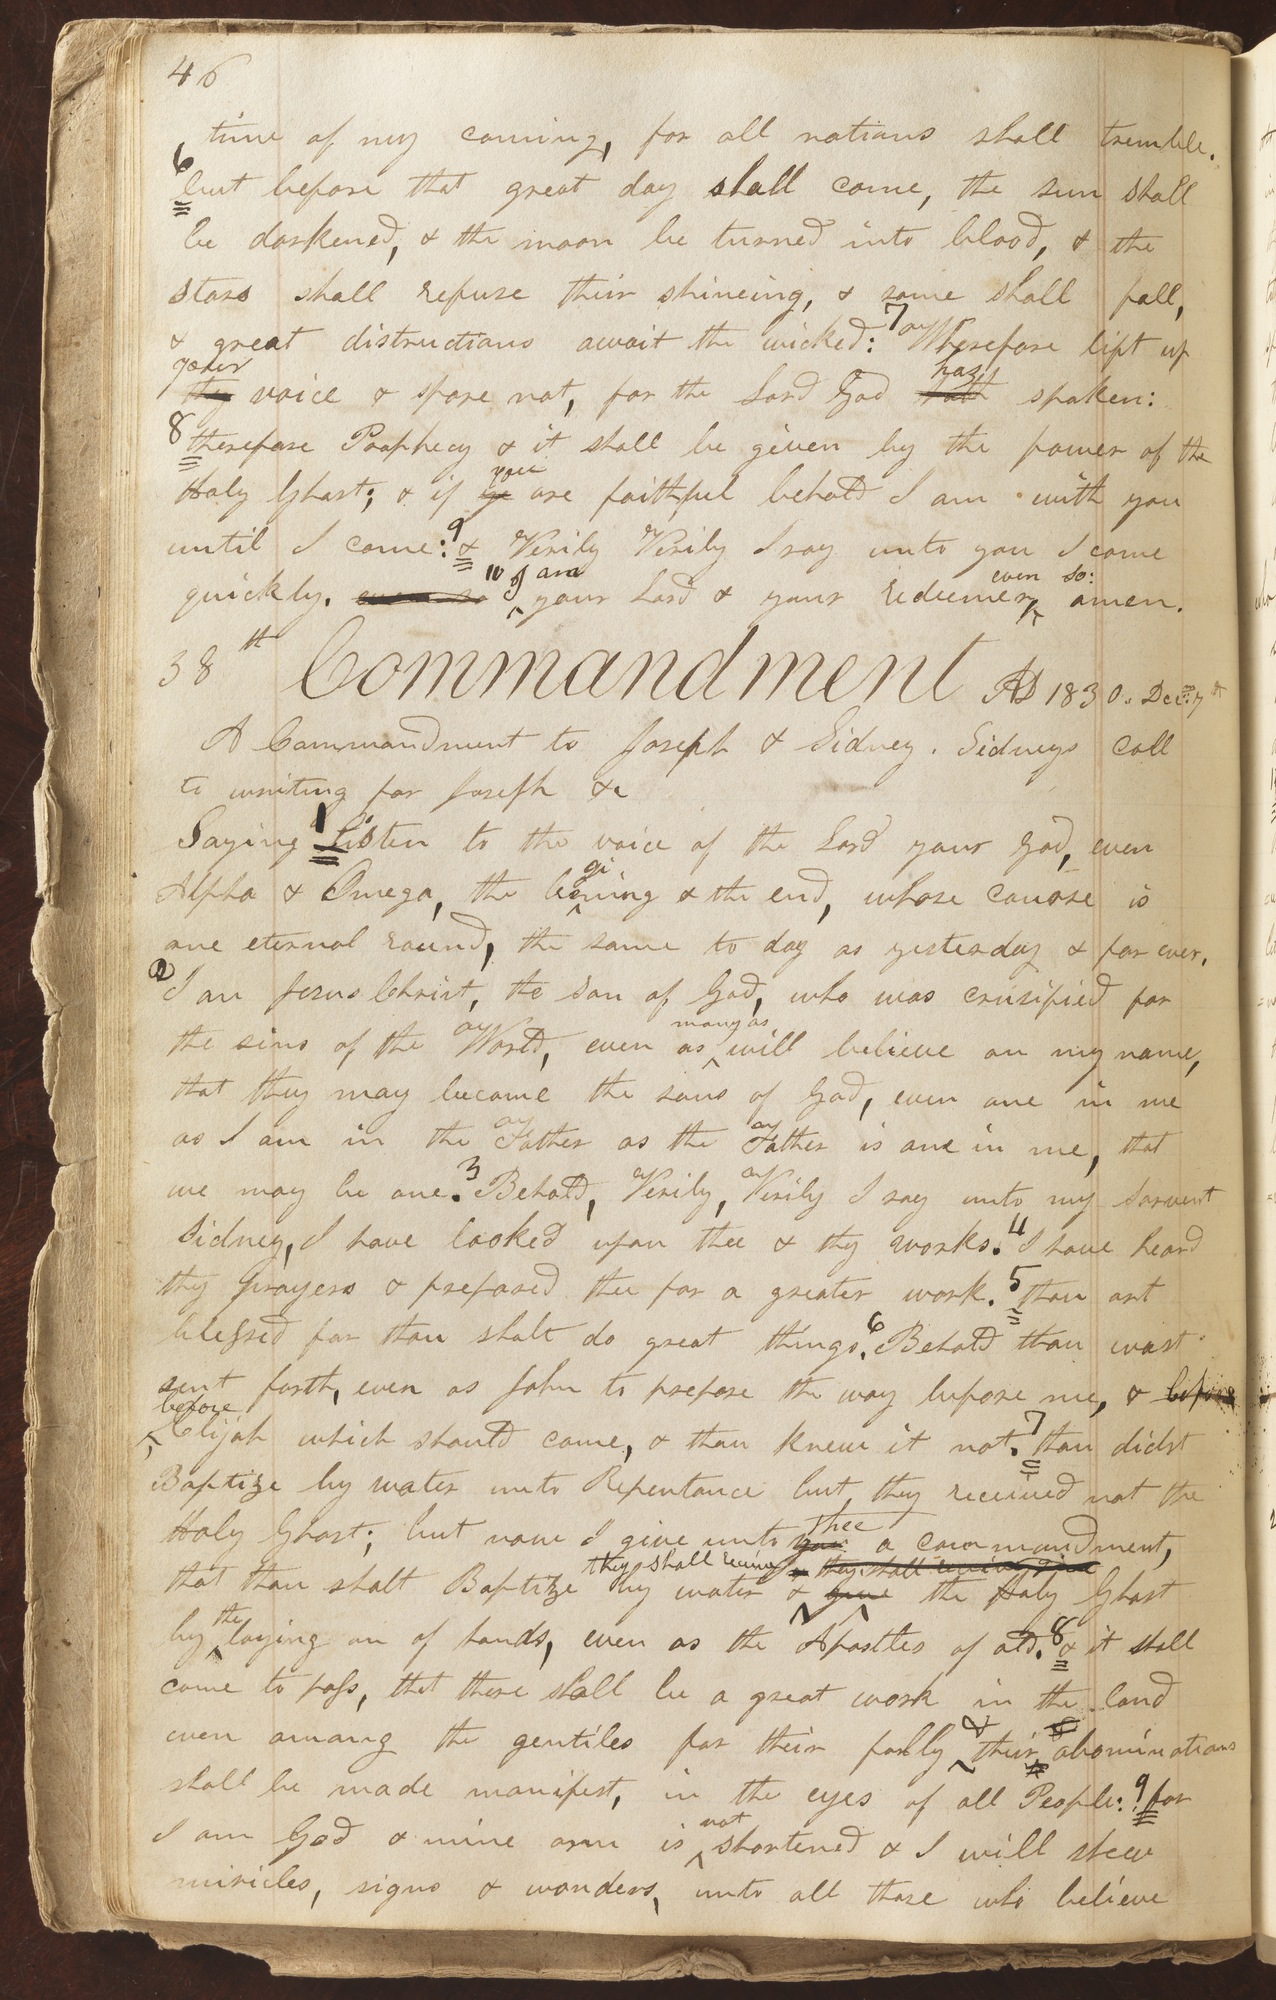 46
time of my coming, for all nations shall tremble.
6 but before that great day shall come, the sun shall
be darkened, & the moon be turned into blood, & the
stars shall refuse their shineing, & some shall fall,
& great distructions await the wicked: 7 Wherefore lift up
your
thy voice & spare not, for the Lord God hath has spoken:
8 therefore Prophecy & it shall be given by the power of the
Holy Ghost; & if ye you are faithful behold I am with you
until I come: 9 & Verily Verily I say unto you I come
quickly. even so 10 I am your Lord & your redeemer, even so: amen.
38th Commandment AD 1830. Decm. 7th
A Commandment to Joseph & Sidney. Sidneys call
to writing for Joseph &c
Saying 1 Listen to the voice of the Lord your God, even
Alpha & Omega, the begining & the end, whose course is
one eternal round, the same to day as yesterday & for ever.
2 I am Jesus Christ, the son of God, who was crusified for
the sins of the World, even as many as will believe on my name,
that they may become the sons of God, even one in me
as I am in the Father as the Father is one in me, that
we may be one. 3 Behold, Verily, Verily I say unto my Servent
Sidney, I have looked upon thee & thy works. 4 I have heard
thy prayers & prepared thee for a greater work. 5 thou art
blessed for thou shalt do great things. 6 Behold thou wast
sent forth, even as John to prepare the way before me, & before
before Elijah which should come, & thou knew it not. 7 thou didst
Baptize by water unto Repentance but they received not the
Holy Ghost; but now I give unto you thee a commandment,
they shall receive they shall receive
that thou shalt Baptize by water & give the Holy Ghost
by the laying on of hands, even as the Apostles of old. 8 & it shall
come to pass, that there shall be a great work in the land
even among the gentiles for their folly & their abominations
shall be made manifest, in the eyes of all People: 9 for
I am God & mine arm is not shortened & I will shew
miricles, signs & wonders, unto all those who believe